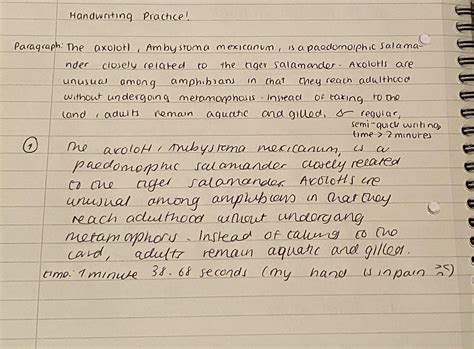 Handwriting Practice!
Paragraph: The axolotl, Ambystoma mexicanum, is a paedomorphic salama-
nder closely related to the tiger salamander. Axolotls are
unusual among amphibians in that they reach adulthood
without undergoing metamorphosis. Instead of taking to the
land, adults remain aquatic and gilled. ↳ regular,
semi-quick writing,
time > 2 minutes
① The axolotl, Ambystoma mexicanum, is a
paedomorphic salamander closely related
to the tiger salamander. Axolotls are
unusual among amphibians in that they
reach adulthood without undergoing
metamorphosis. Instead of taking to the
land, adults remain aquatic and gilled.
time: 1 minute 38.68 seconds (my hand is in pain